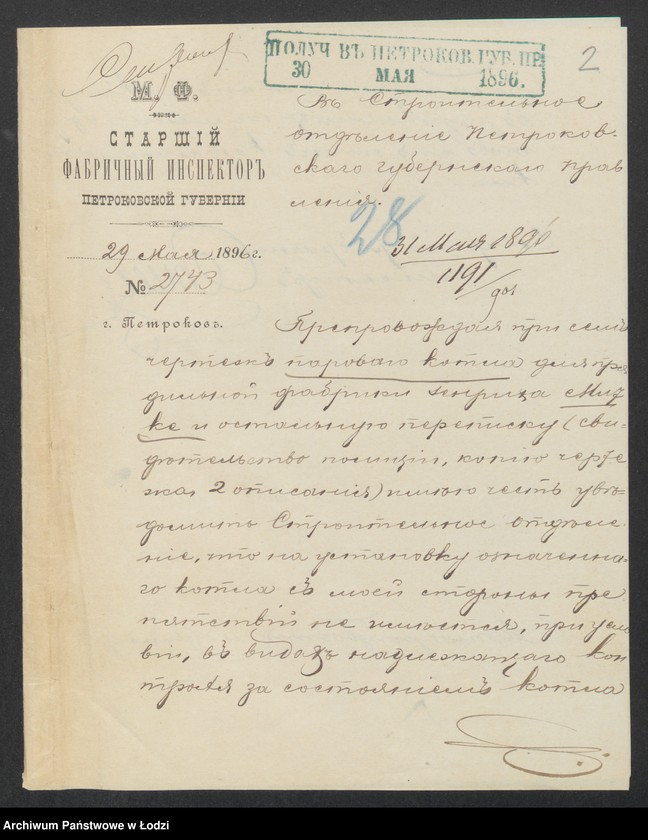 ПОЛУЧ ВЪ ПЕТРОКОВ. ГУБ. ПР.
30 МАЯ 1896.
2
М. Ф.
СТАРШІЙ
ФАБРИЧНЫЙ ИНСПЕКТОРЪ
ПЕТРОКОВСКОЙ ГУБЕРНІИ
29 Мая 1896 г.
№ 2743
г. Петроковъ.
Въ Строительное
отдѣленіе Петроков-
скаго Губернскаго Прав
ленія.
28
31 Мая 1896
1191
Препровождая при семъ
чертежъ пароваго котла для пря
дильной фабрики Генриха Миц
ке и остальную переписку (сви-
дѣтельство полиціи, копію черте
жа, 2 описанія) имѣю честь увѣ-
домить Строительное отдѣле-
ніе, что на установку означенна-
го котла съ моей стороны пре
пятствій не имѣется, при усло
віи, въ видахъ надлежащаго кон
троля за состояніемъ котла
Archiwum Państwowe w Łodzi